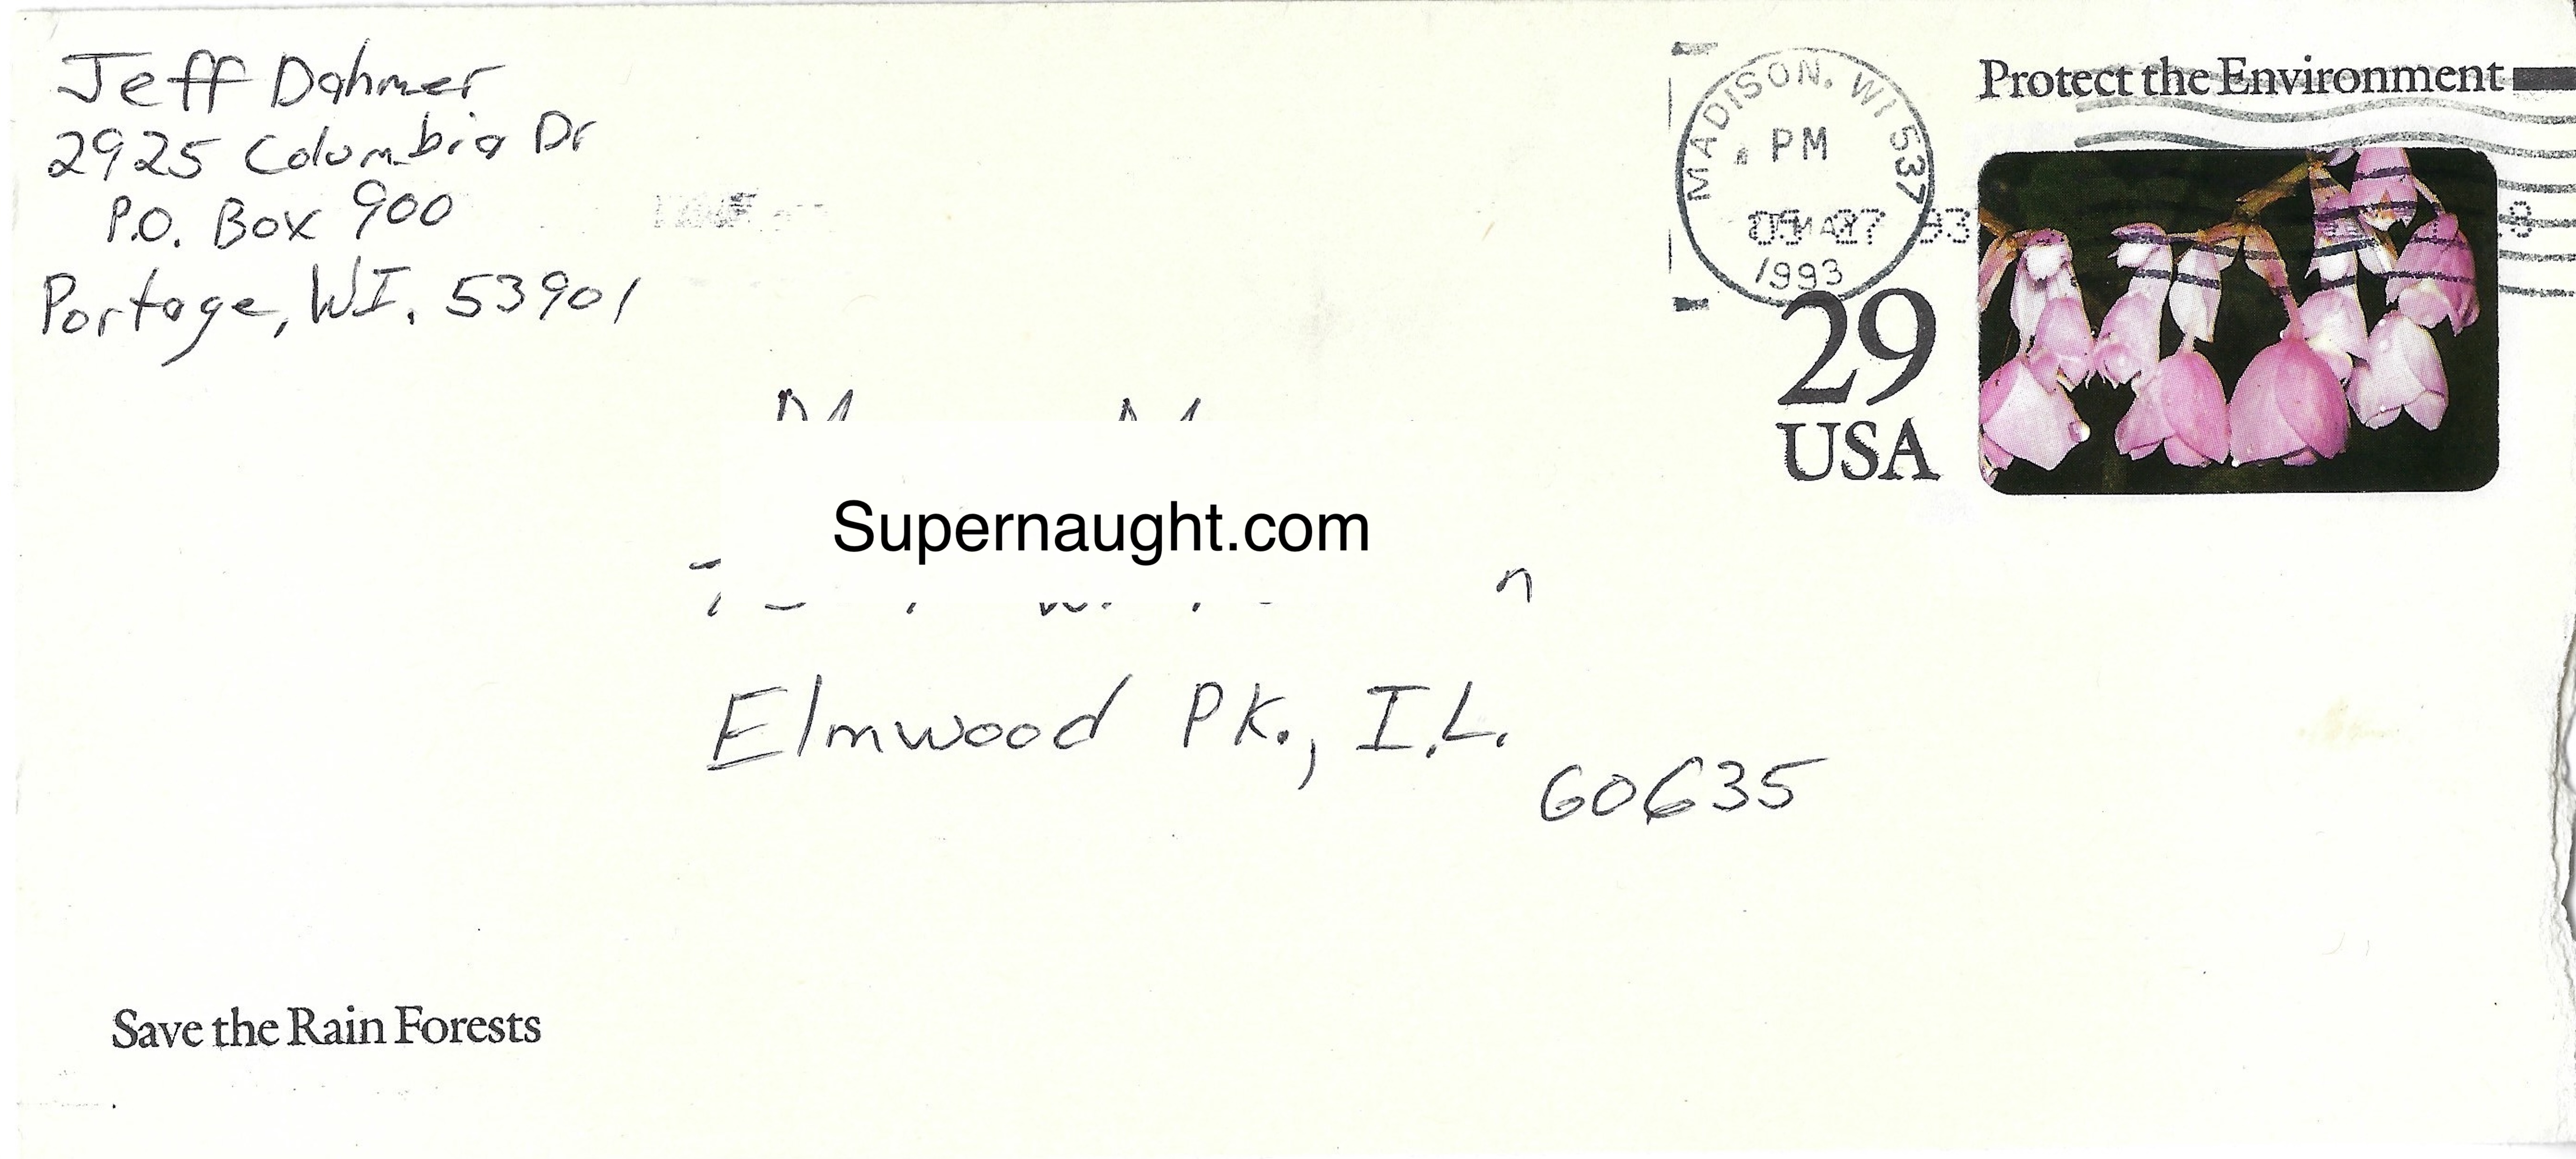 Jeff Dahmer
2925 Columbia Dr
P.O. Box 900
Portage, WI. 53901
MADISON, WI 537
PM
1993
Protect the Environment
29
USA
Supernaught.com
Elmwood PK., I.L.
60635
Save the Rain Forests